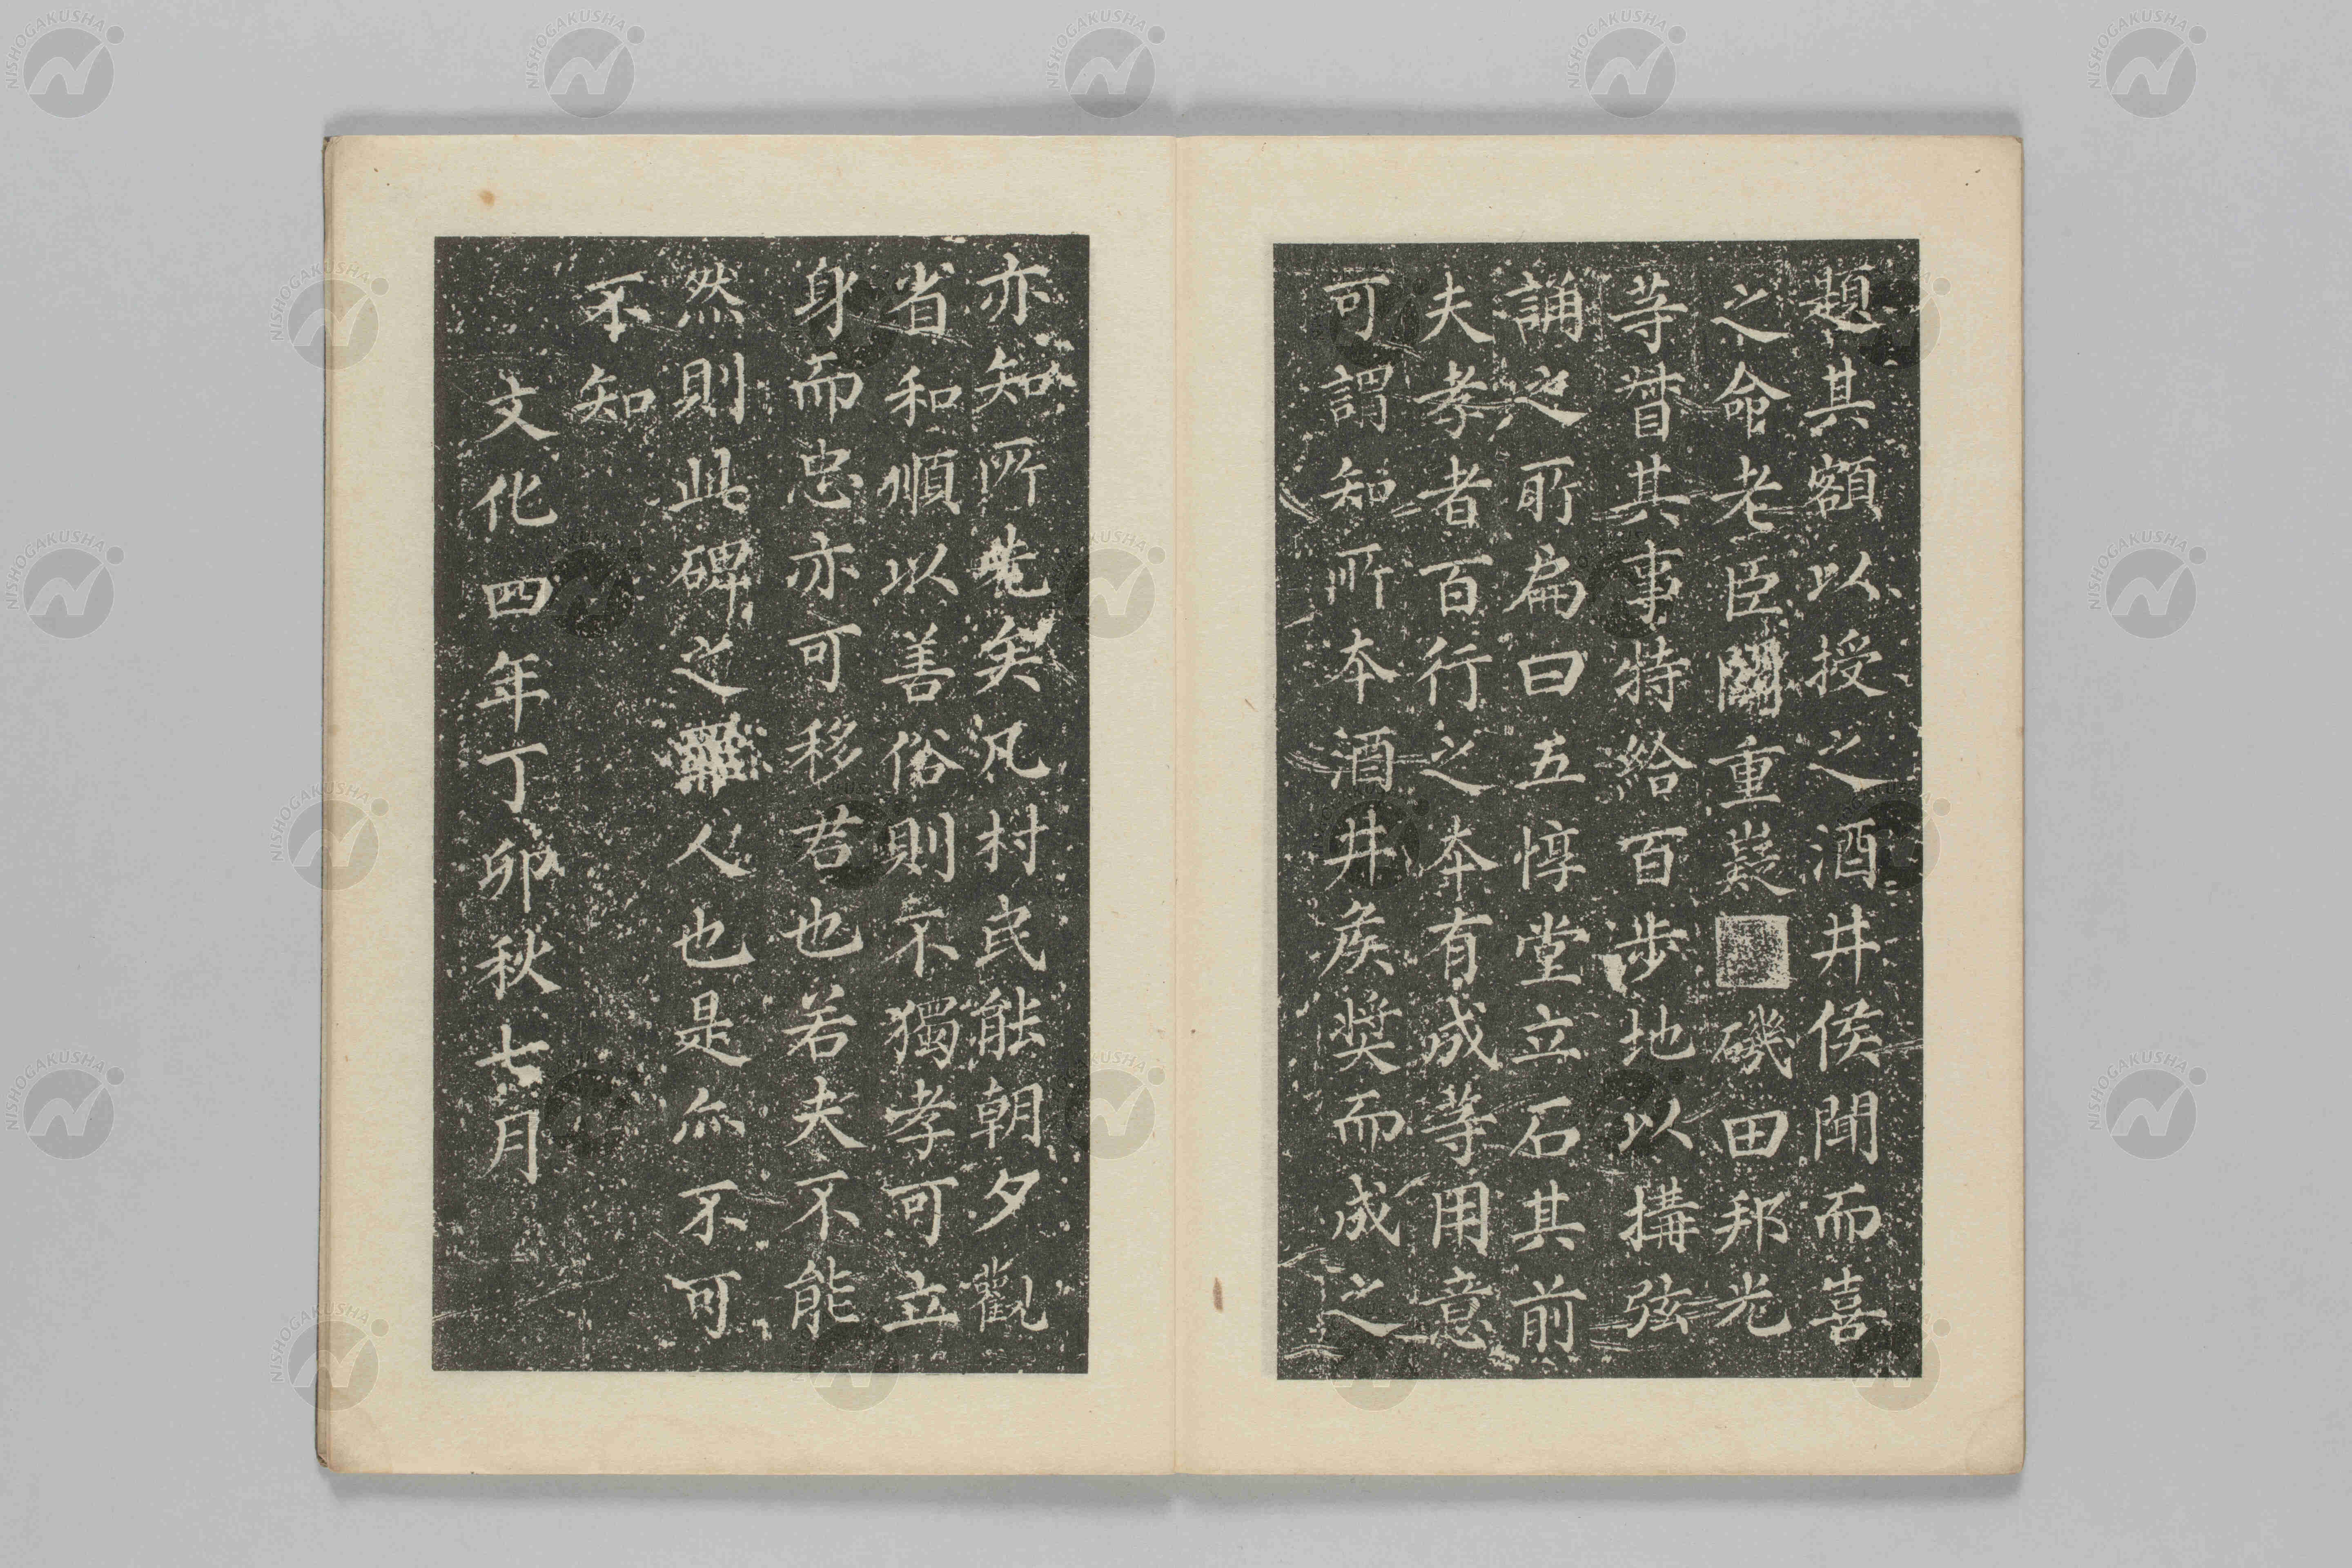 題其額以授之酒井侯聞而喜
之命老臣關重嶷磯田邦光
等督其事特給百步地以搆弦
誦之所扁曰五惇堂立石其前
夫孝者百行之本有成等用意
可謂知所本酒井矦奨而成之
亦知所先矣凡村民能朝夕觀
省和順以善俗則不獨孝可立
身而忠亦可移君也若夫不能
然則此碑之罪人也是亦不可
不知
文化四年丁卯秋七月
NISHOGAKUSHA